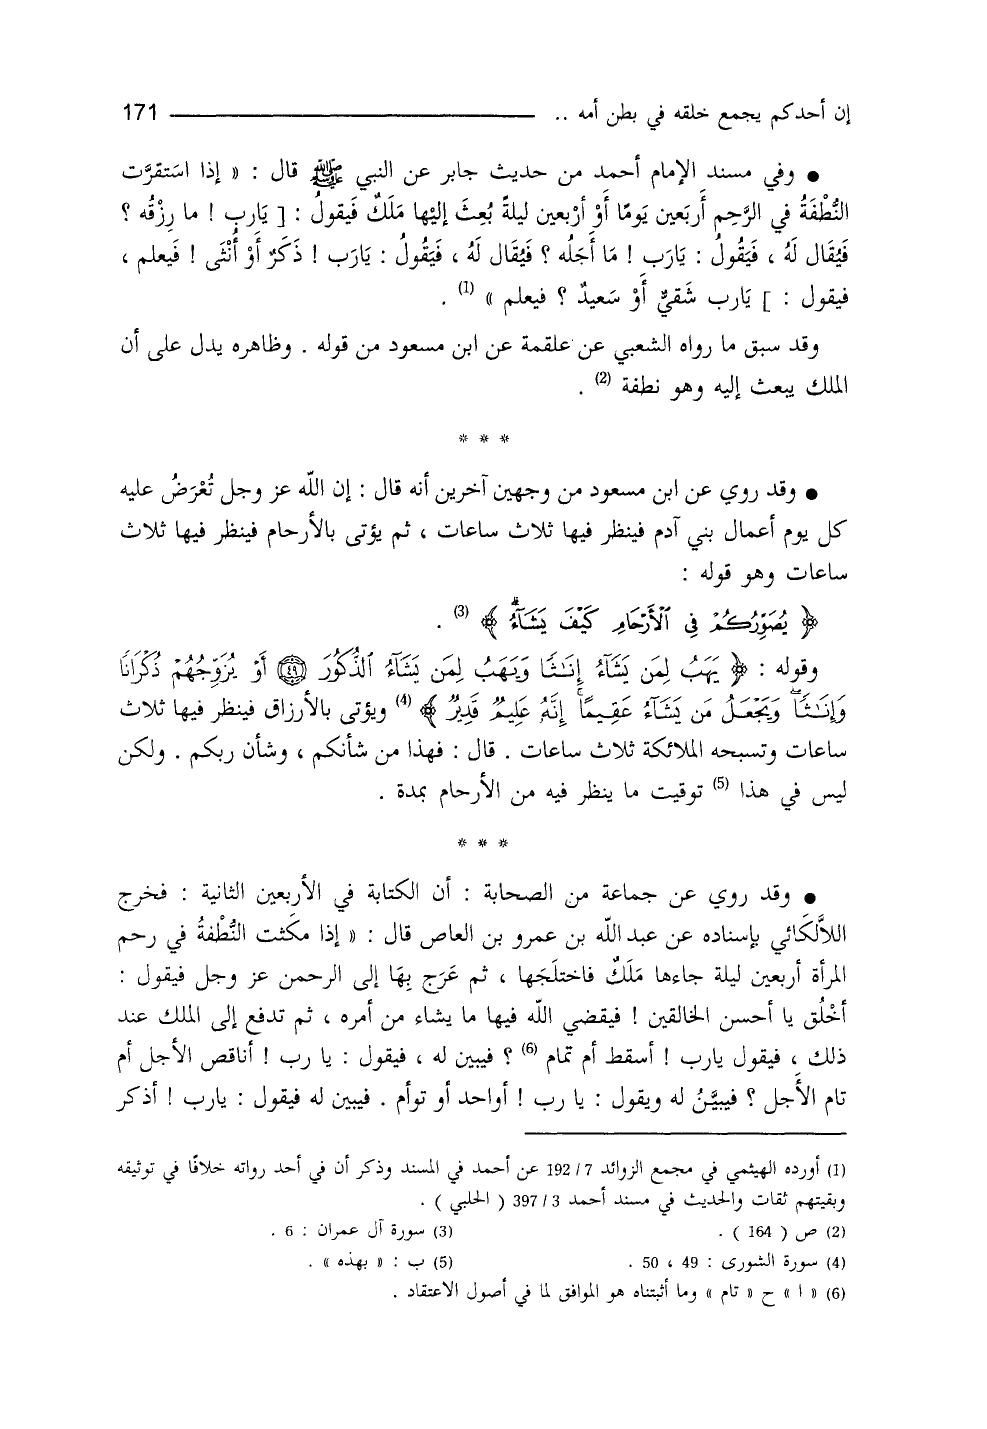 إن أحدكم يجمع خلقه في بطن أمه .. 171
● وفي مسند الإمام أحمد من حديث جابر عن النبي ﷺ قال : « إذا استَقرَّت
النُّطْفَةُ في الرَّحِمِ أَربَعين يَومًا أَوْ أرْبعين ليلةً بُعِثَ إليْها مَلَكٌ فَيقولُ : [ يَاربِ ! ما رِزْقُه ؟
فَيُقَال لَهُ ، فَيَقُولُ : يَارَب ! مَا أَجَلُه ؟ فَيُقَال لَهُ ، فَيَقُولُ : يَارَب ! ذَكَرٌ أَوْ أُنْثَى ! فَيعلم ،
فيقول : ] يَارب شَقيٌّ أَوْ سَعيدٌ ؟ فيعلم » (1) .
وقد سبق ما رواه الشعبي عن علقمة عن ابن مسعود من قوله . وظاهره يدل على أن
الملك يبعث إليه وهو نطفة (2) .
* * *
● وقد روي عن ابن مسعود من وجهين آخرين أنه قال : إن اللّه عز وجل تُعْرَضُ عليه
كل يوم أعمال بني آدم فينظر فيها ثلاث ساعات ، ثم يؤتى بالأرحام فينظر فيها ثلاث
ساعات وهو قوله :
﴿ يُصَوِّرُكُمْ فِي ٱلْأَرْحَامِ كَيْفَ يَشَآءُ ﴾ (3) .
وقوله : ﴿ يَهَبُ لِمَن يَشَآءُ إِنَـٰثًا وَيَهَبُ لِمَن يَشَآءُ ٱلذُّكُورَ ۝٤٩ أَوْ يُزَوِّجُهُمْ ذُكْرَانًا
وَإِنَـٰثًا ۖ وَيَجْعَلُ مَن يَشَآءُ عَقِيمًا ۚ إِنَّهُ عَلِيمٌ قَدِيرٌ ﴾ (4) ويؤتى بالأرزاق فينظر فيها ثلاث
ساعات وتسبحه الملائكة ثلاث ساعات . قال : فهذا من شأنكم ، وشأن ربكم . ولكن
ليس في هذا (5) توقيت ما ينظر فيه من الأرحام بمدة .
* * *
● وقد روي عن جماعة من الصحابة : أن الكتابة في الأربعين الثانية : فخرج
اللاَّلَكَائي بإسناده عن عبد اللّه بن عمرو بن العاص قال : « إذا مكَثت النُّطْفةُ في رحم
المرأة أربعين ليلة جاءها مَلَكٌ فاختلَجَها ، ثم عَرَج بِهَا إلى الرحمن عز وجل فيقول :
أخْلُق يا أحسن الخالقين ! فيقضي اللّه فيها ما يشاء من أمره ، ثم تدفع إلى الملك عند
ذلك ، فيقول ياربِ ! أسقط أم تمام (6) ؟ فيبين له ، فيقول : يا رب ! أناقص الأجل أم
تام الأَجل ؟ فيبيَّنُ له ويقول : يا رب ! أواحد أو توأم . فيبين له فيقول : يارب ! أذكر
(1) أورده الهيثمي في مجمع الزوائد 7 / 192 عن أحمد في المسند وذكر أن في أحد رواته خلافًا في توثيقه
وبقيتهم ثقات والحديث في مسند أحمد 3 / 397 ( الحلبي ) .
(2) ص ( 164 ) . (3) سورة آل عمران : 6 .
(4) سورة الشورى : 49 ، 50 . (5) ب : « بهذه » .
(6) « ا » ح « تام » وما أثبتناه هو الموافق لما في أصول الاعتقاد .